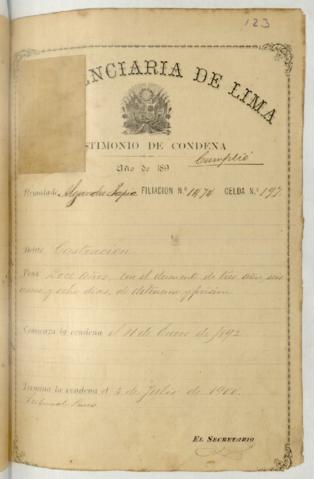 123
ENCIARIA DE LIMA
STIMONIO DE CONDENA
Año de 189
Cumplió
FILIACION N.º 1474 CELDA N.º 197
Delito Castracion
Pena Doce años, con el descuento de tres años, seis
meses y ocho dias, de detencion y prision
Comienza la condena el 11 de Enero de 1892
Termina la condena el 4 de Julio de 1900.
Tribunal
EL SECRETARIO